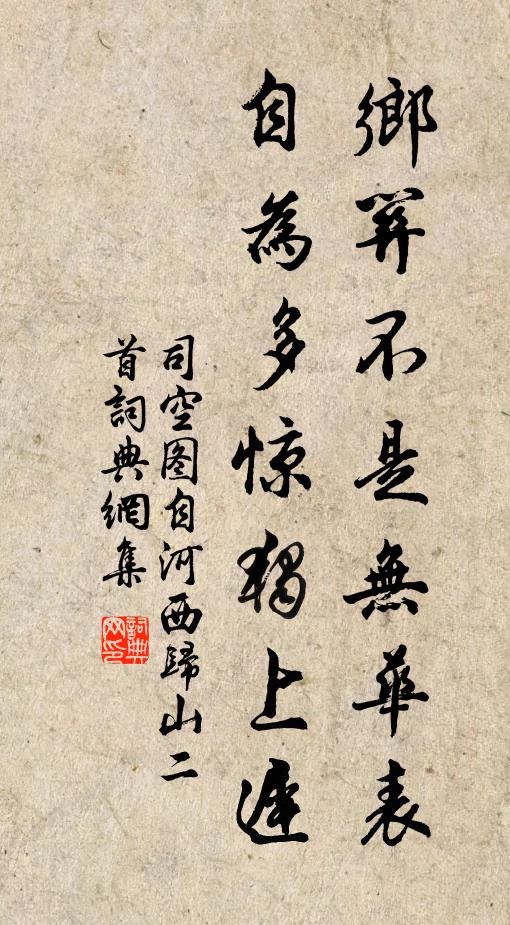 鄉關不是無華表
自為多惊獨上遲
司空图自河西歸山二
首詞典網集
詞典网印